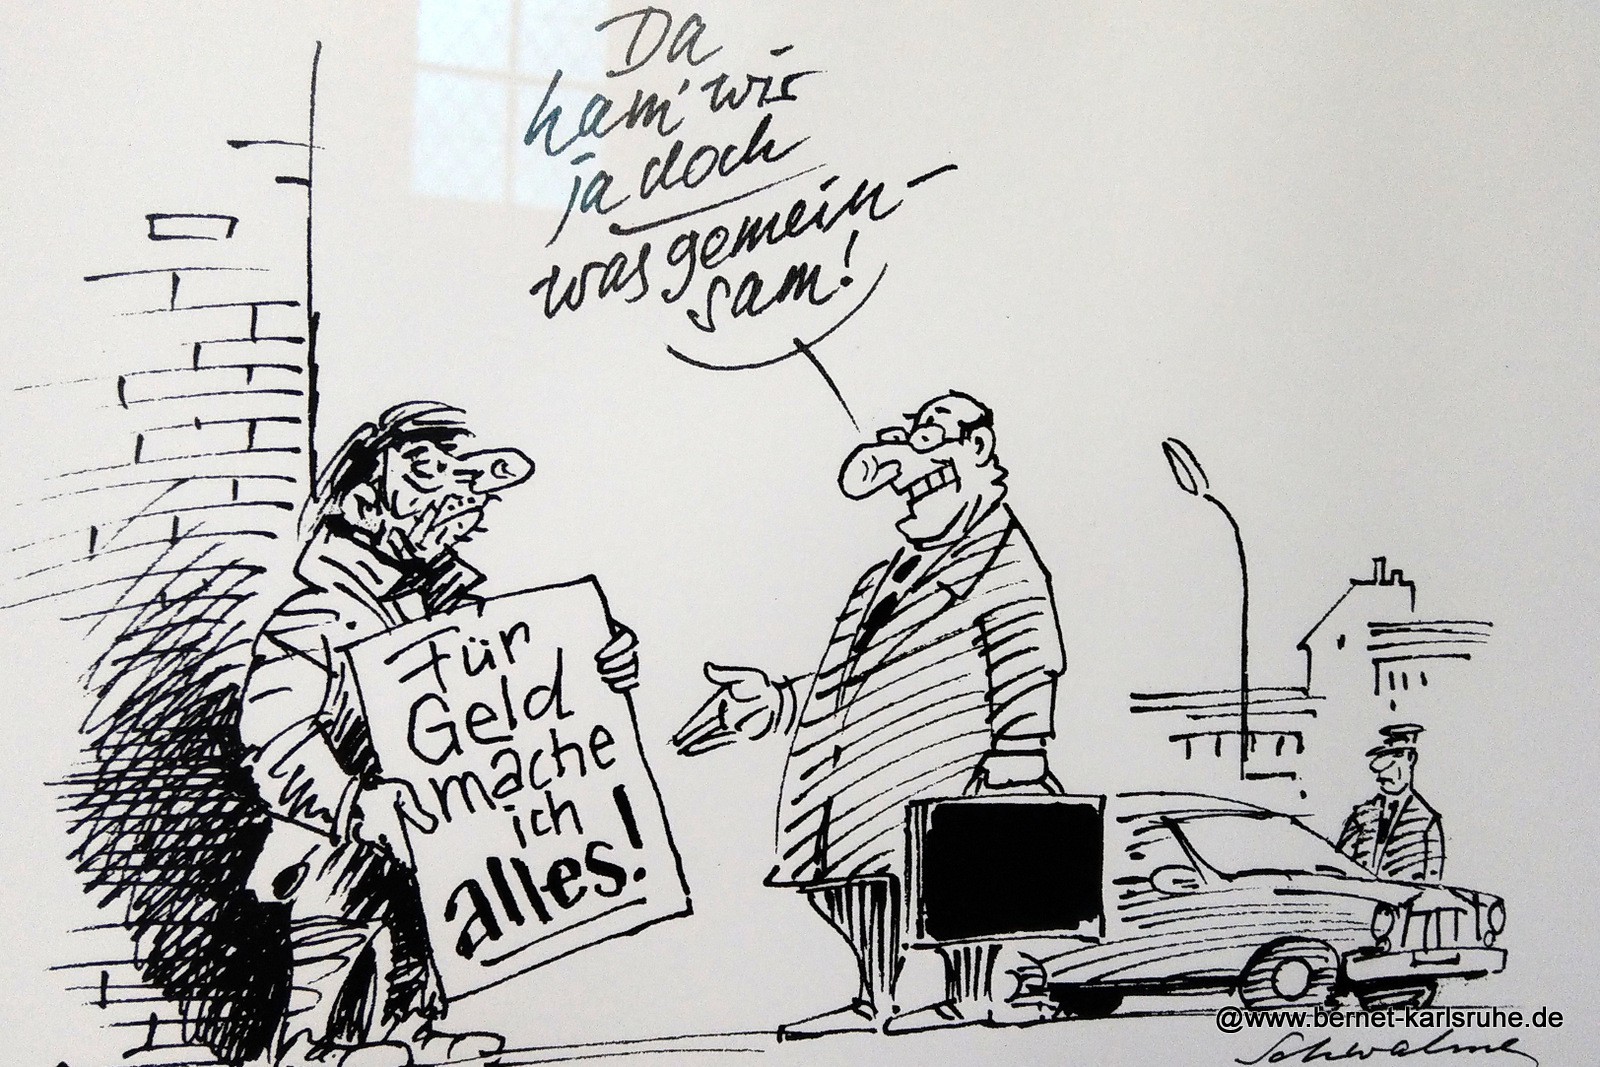 Da
ham' wir
ja doch
was gemein-
sam!
Für
Geld
mache
ich
alles!
@www.bernet-karlsruhe.de
Schwalme